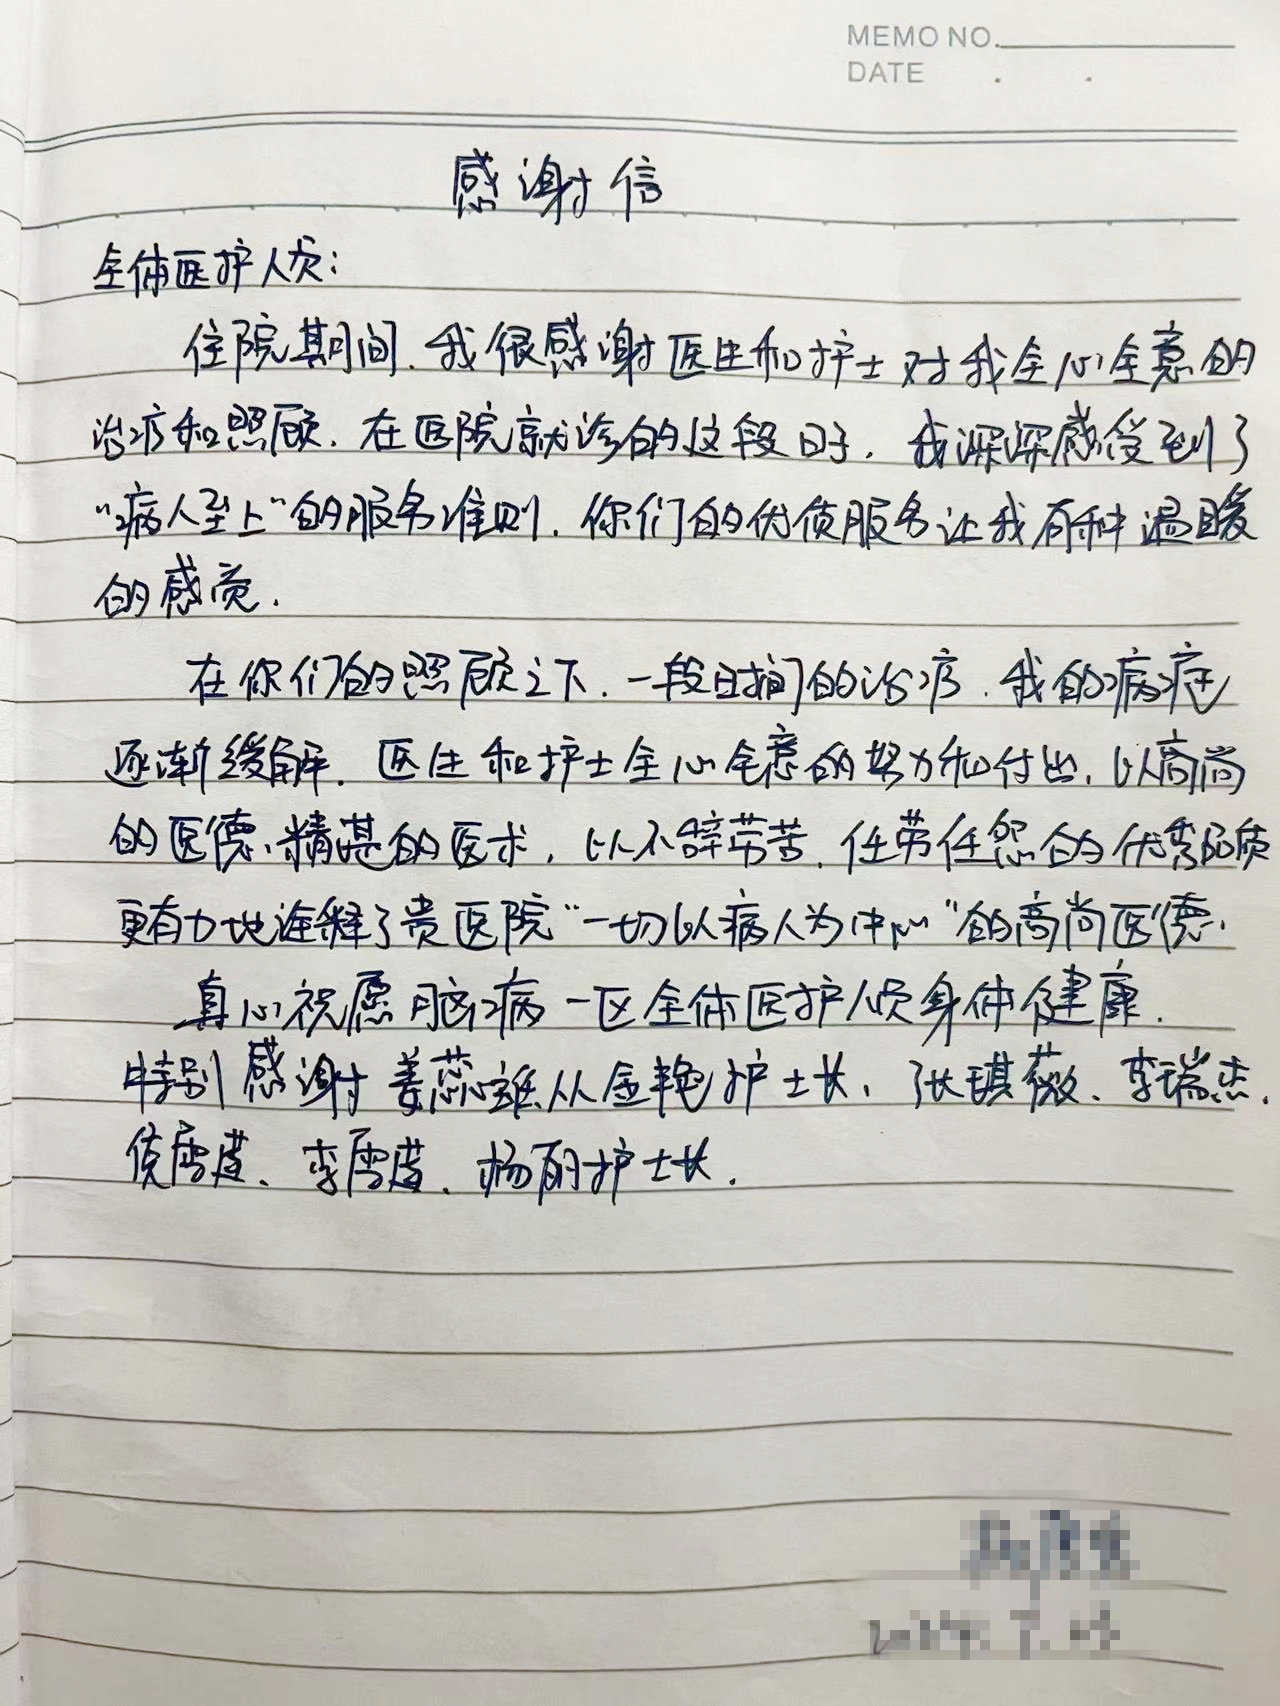 MEMO NO.
DATE . .
感谢信
全体医护人员:
住院期间.我很感谢医生和护士对我全心全意的
治疗和照顾.在医院就诊的这段日子.我深深感受到了
“病人至上”的服务准则.你们的优质服务让我有种温暖
的感觉.
在你们的照顾之下.一段时间的治疗.我的病症
逐渐缓解.医生和护士全心全意的努力和付出,以高尚
的医德、精湛的医术,以不辞劳苦.任劳任怨的优秀品质
更有力地诠释了贵医院“一切以病人为中心”的高尚医德.
真心祝愿脑病一区全体医护人员身体健康.
特别感谢姜蕊 从金艳护士长、张琪薇、李瑞杰.
侯雪莲、李雪莲、杨丽护士长.